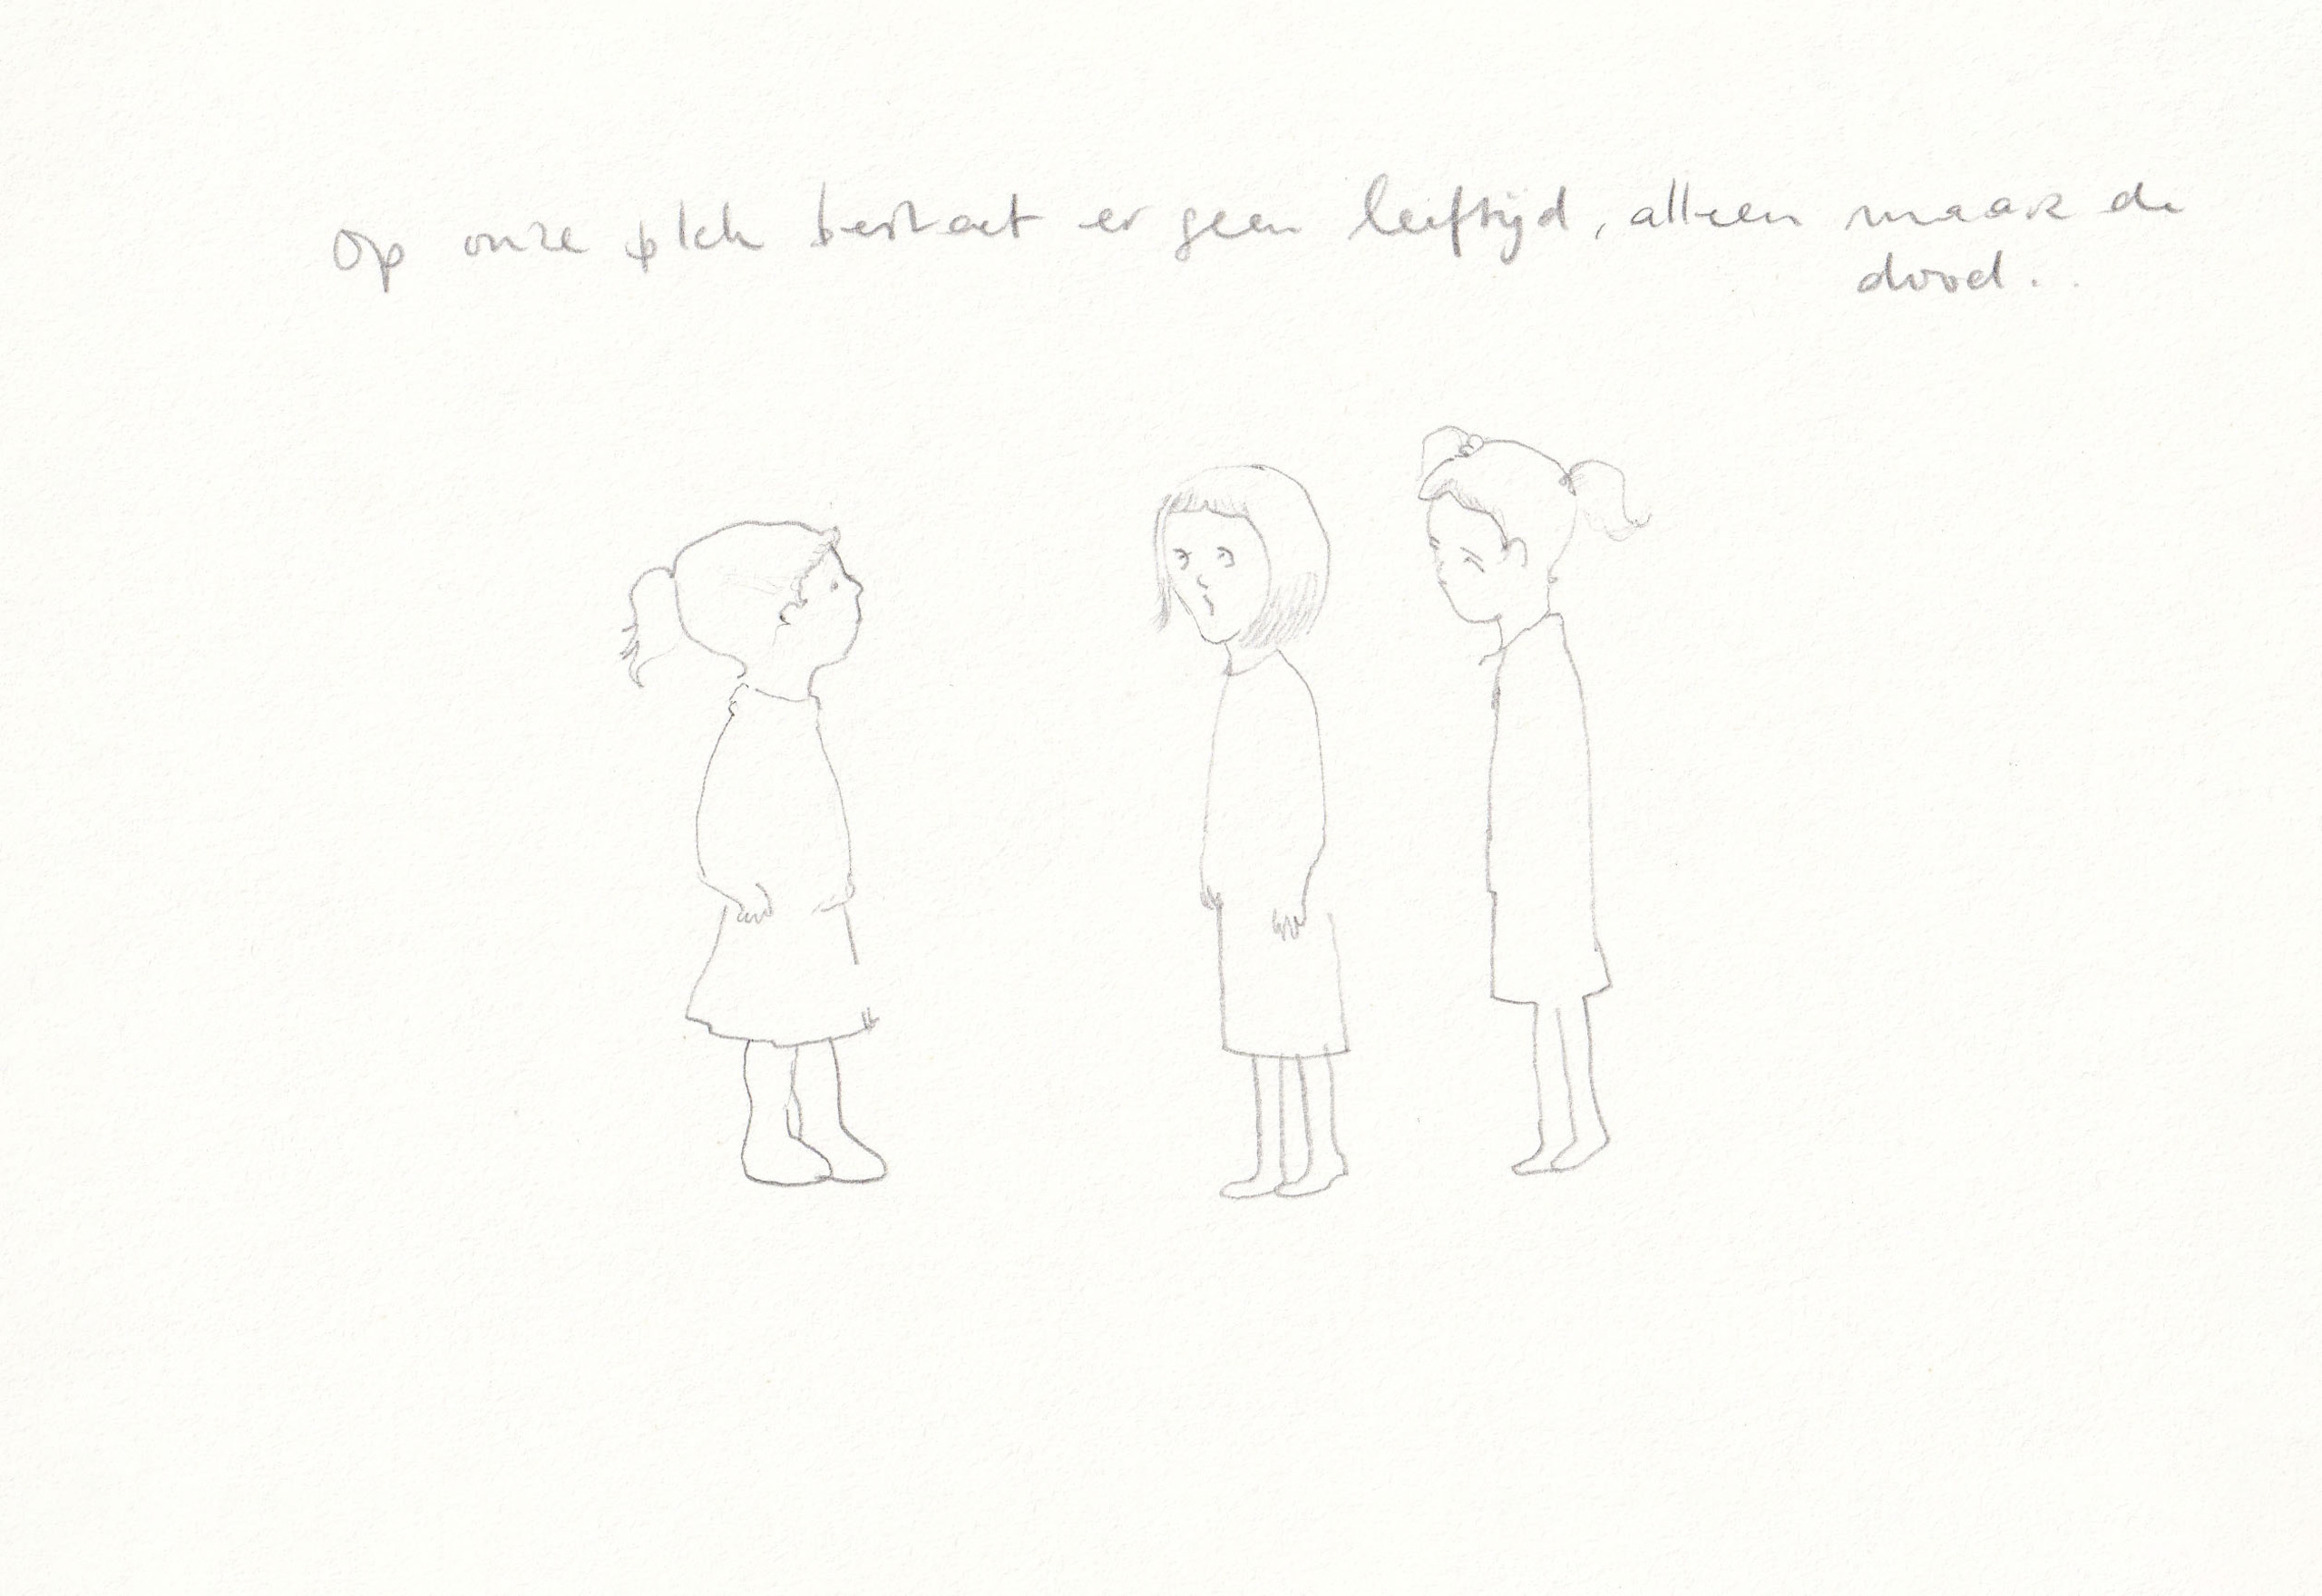 Op onze plek bestaat er geen leeftijd, alleen maar de
dood..